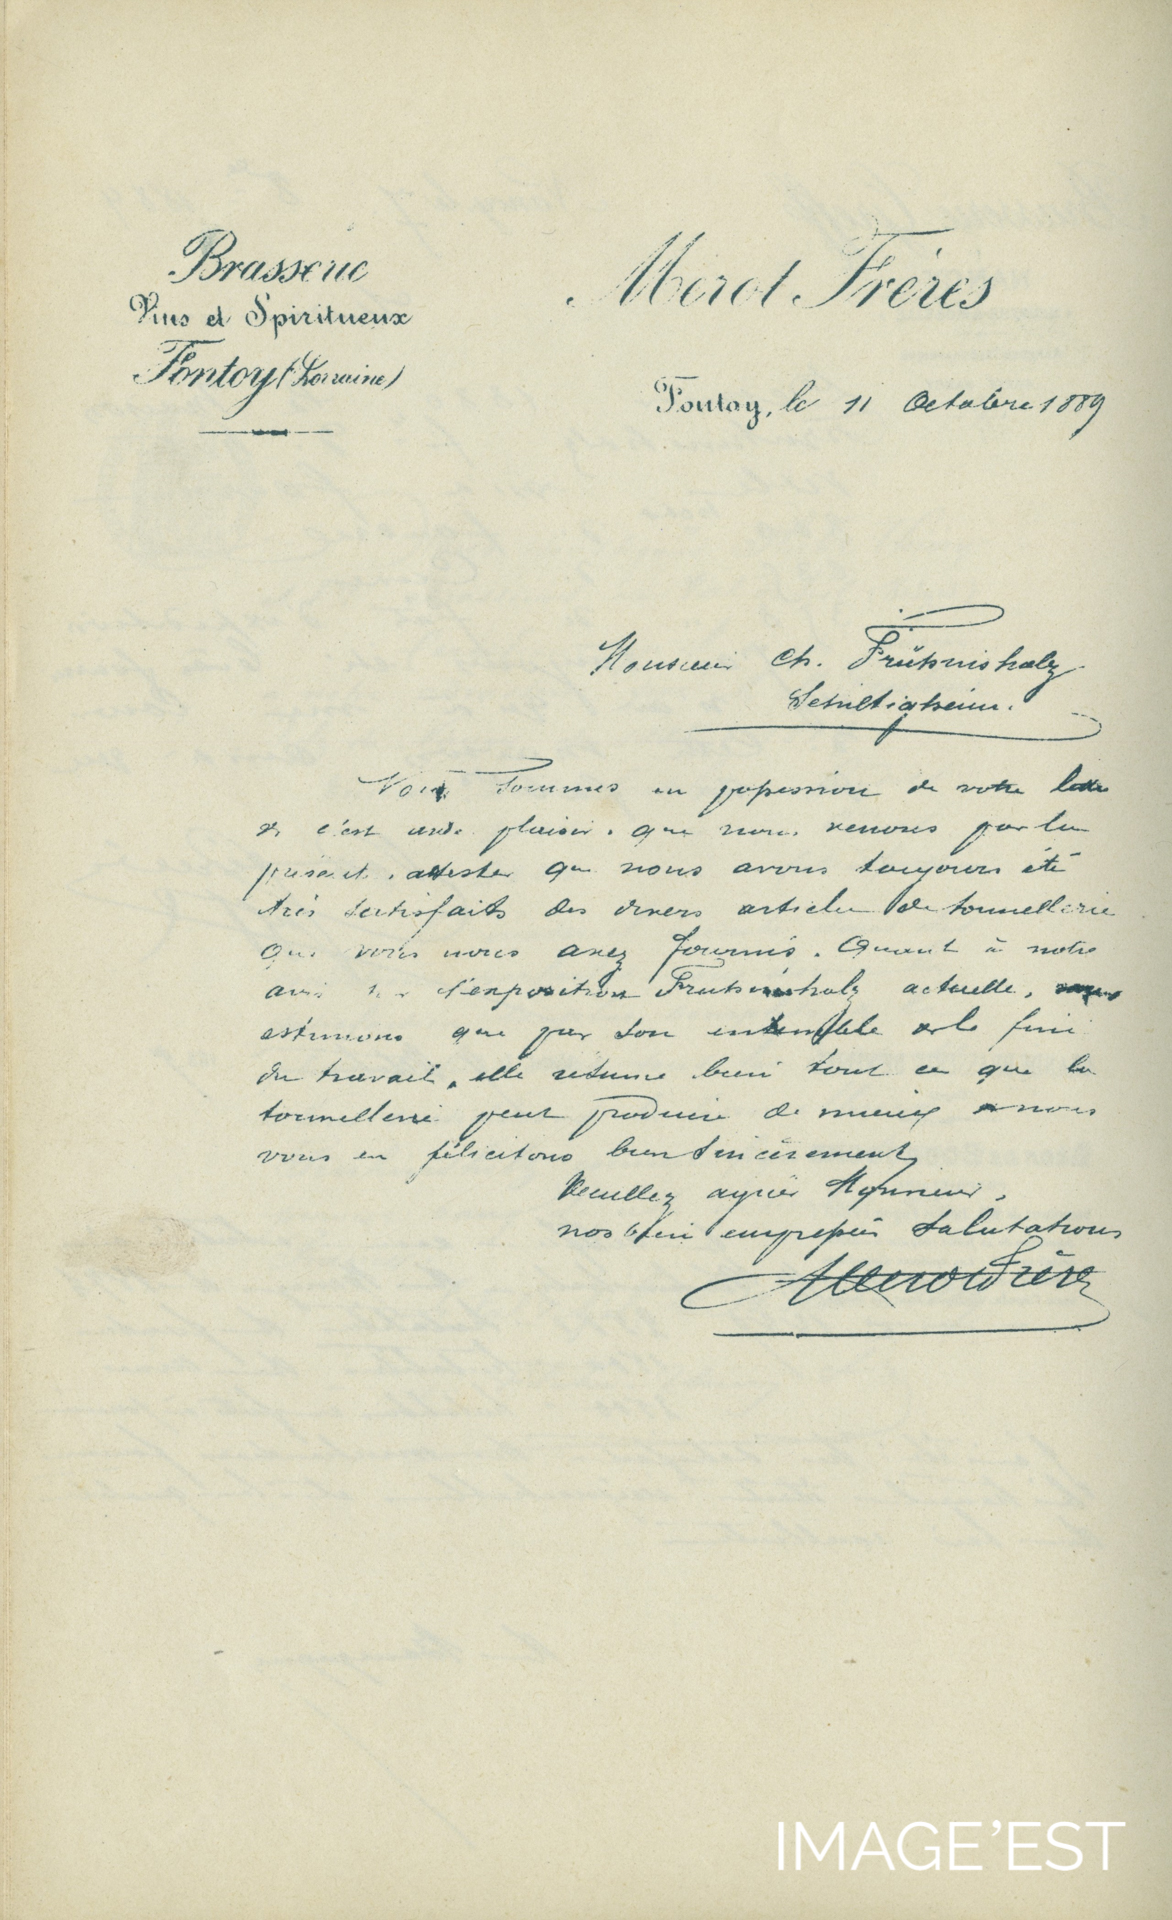 Brasserie
Vins et Spiritueux
Fontoy (Lorraine)
Merot Frères
Fontoy, le 11 Octobre 1889
Monsieur Ch. Frühinsholz
Schiltigheim.
Nous sommes en possession de votre lettre
& c'est avec plaisir que nous venons par la
présente attester que nous avons toujours été
très satisfaits des divers articles de tonnellerie
que vous nous avez fournis. Quant à notre
avis sur l'exposition Fruhinsholz actuelle, nous
estimons que par son ensemble & le fini
du travail, elle résume bien tout ce que la
tonnellerie peut produire de mieux & nous
vous en félicitons bien sincèrement
Veuillez agréer Monsieur,
nos bien empressées salutations
Merot Frères
IMAGE'EST